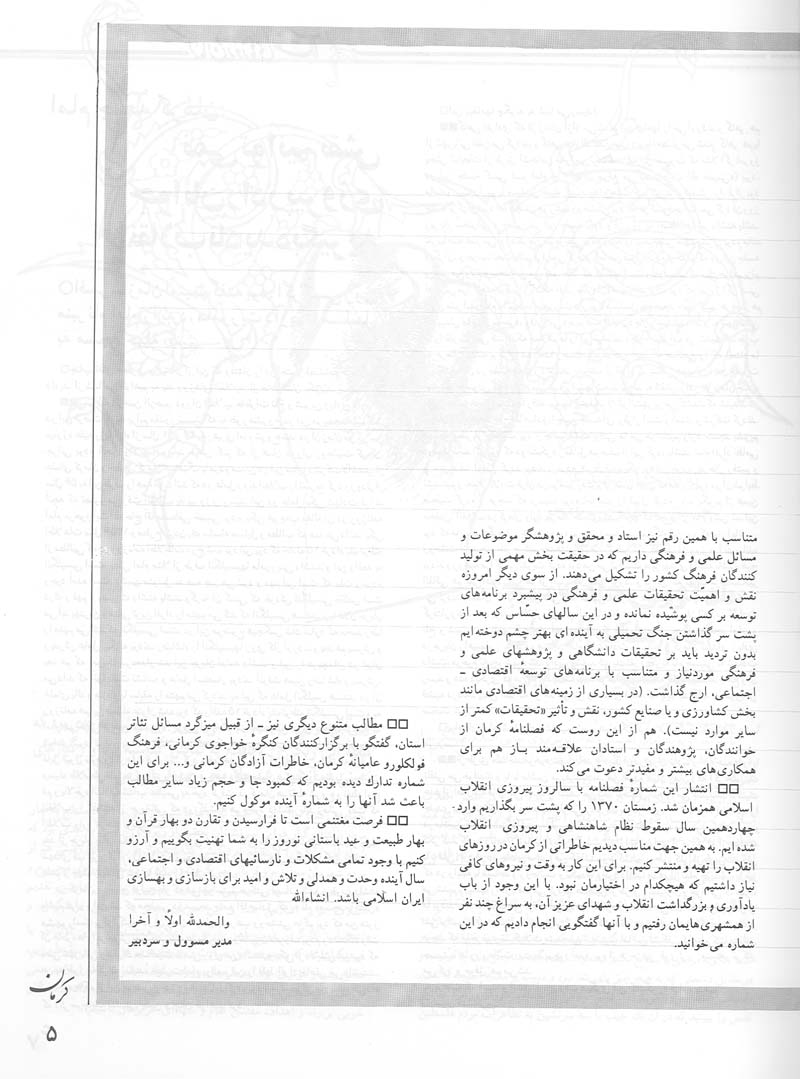 متناسب با همین رقم نیز استاد و محقق و پژوهشگر موضوعات و
مسائل علمی و فرهنگی داریم که در حقیقت بخش مهمی از تولید
کنندگان فرهنگ کشور را تشکیل می‌دهند. از سوی دیگر امروزه
نقش و اهمیّت تحقیقات علمی و فرهنگی در پیشبرد برنامه‌های
توسعه بر کسی پوشیده نمانده و در این سالهای حسّاس که بعد از
پشت سر گذاشتن جنگ تحمیلی به آینده‌ای بهتر چشم دوخته‌ایم
بدون تردید باید بر تحقیقات دانشگاهی و پژوهشهای علمی و
فرهنگی موردنیاز و متناسب با برنامه‌های توسعهٔ اقتصادی ـ
اجتماعی، ارج گذاشت. (در بسیاری از زمینه‌های اقتصادی مانند
بخش کشاورزی و یا صنایع کشور، نقش و تأثیر «تحقیقات» کمتر از
سایر موارد نیست). هم از این روست که فصلنامهٔ کرمان از
خوانندگان، پژوهندگان و استادان علاقه‌مند باز هم برای
همکاری‌های بیشتر و مفیدتر دعوت می‌کند.
□□ انتشار این شمارهٔ فصلنامه با سالروز پیروزی انقلاب
اسلامی همزمان شد. زمستان ۱۳۷۰ را که پشت سر بگذاریم وارد
چهاردهمین سال سقوط نظام شاهنشاهی و پیروزی انقلاب
شده‌ایم. به همین جهت مناسب دیدیم خاطراتی از کرمان در روزهای
انقلاب را تهیه و منتشر کنیم. برای این کار به وقت و نیروهای کافی
نیاز داشتیم که هیچکدام در اختیارمان نبود. با این وجود از باب
یادآوری و بزرگداشت انقلاب و شهدای عزیز آن، به سراغ چند نفر
از همشهری‌هایمان رفتیم و با آنها گفتگویی انجام دادیم که در این
شماره می‌خوانید.
□□ مطالب متنوع دیگری نیز ـ از قبیل میزگرد مسائل تئاتر
استان، گفتگو با برگزارکنندگان کنگرهٔ خواجوی کرمانی، فرهنگ
فولکلورو عامیانهٔ کرمان، خاطرات آزادگان کرمانی و... برای این
شماره تدارك دیده بودیم که کمبود جا و حجم زیاد سایر مطالب
باعث شد آنها را به شمارهٔ آینده موکول کنیم.
□□ فرصت مغتنمی است تا فرارسیدن و تقارن دو بهار قرآن و
بهار طبیعت و عید باستانی نوروز را به شما تهنیت بگوییم و آرزو
کنیم با وجود تمامی مشکلات و نارسائیهای اقتصادی و اجتماعی،
سال آینده وحدت و همدلی و تلاش و امید برای بازسازی و بهسازی
ایران اسلامی باشد. انشاءالله
والحمدلله اولاً و آخرا
مدیر مسوول و سردبیر
کرمان
۵